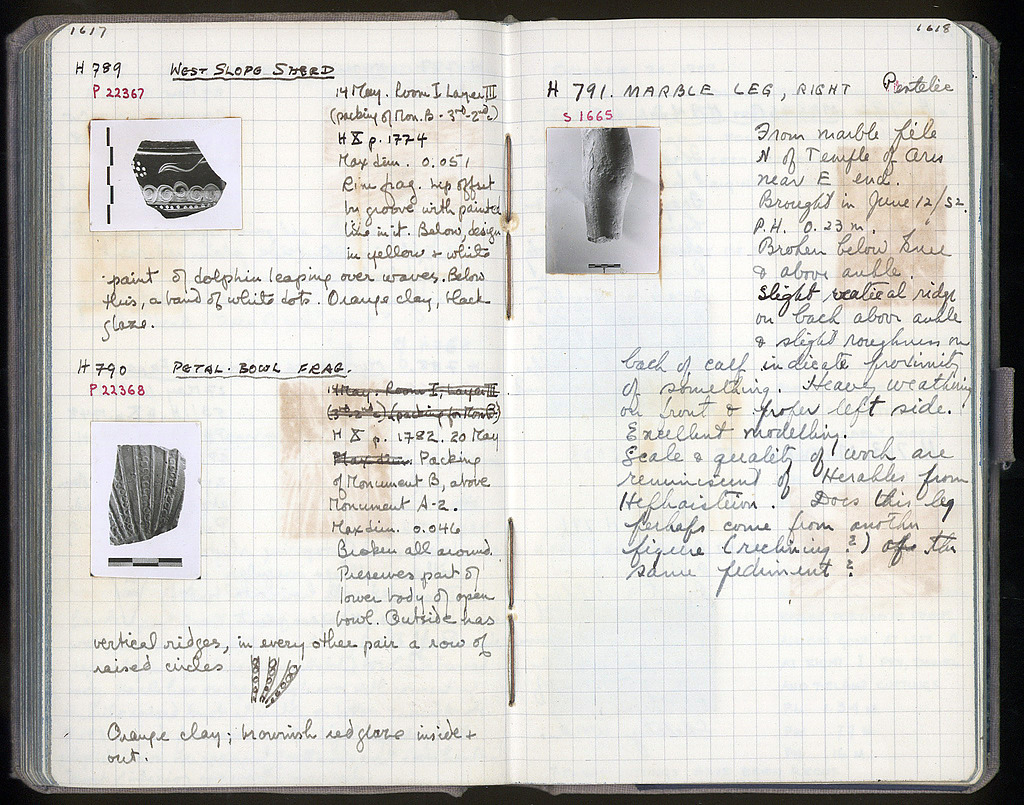 1617
H 789 WEST SLOPE SHERD
P 22367
14 May. Room I, Layer III
(packing of Mon. B - 3rd-2nd c.)
H X p. 1774
Max dim. 0.051
Rim frag. Lip offset
by groove with painted
line in it. Below, design
in yellow + white
paint of dolphin leaping over waves. Below
this, a band of white dots. Orange clay, black
glaze.
H 790 PETAL BOWL FRAG.
P 22368
14 May. Room I, Layer III
(3rd-2nd c.) (packing for Mon B)
H X p. 1782. 20 May
Max dim. Packing
of Monument B, above
Monument A-2.
Max dim. 0.046
Broken all around.
Preserves part of
lower body of open
bowl. Outside has
vertical ridges, in every other pair a row of
raised circles
Orange clay; brownish red glaze inside +
out.
1618
H 791. MARBLE LEG, RIGHT Pentelic
S 1665
From marble pile
N of Temple of Ares
near E end.
Brought in June 12/52.
P.H. 0.23 m.
Broken below knee
& above ankle.
Slight vertical ridge
on back above ankle
& slight roughness on
back of calf indicate proximity
of something. Heavy weathering
on front & proper left side.
Excellent modelling.
Scale & quality of work are
reminiscent of Herakles from
Hephaisteion. Does this leg
perhaps come from another
figure (reclining?) of the
same pediment?